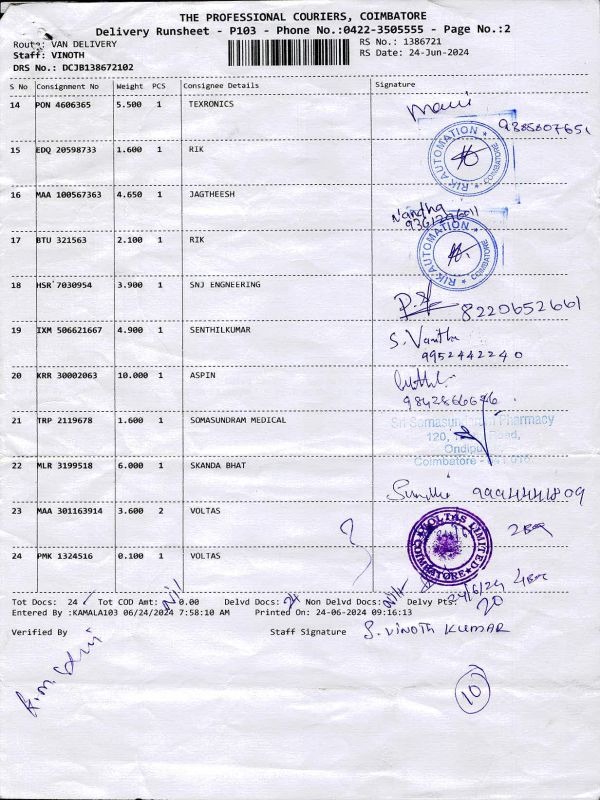 THE PROFESSIONAL COURIERS, COIMBATORE
Delivery Runsheet - P103 - Phone No.:0422-3505555 - Page No.:2
Route: VAN DELIVERY
RS No.: 1386721
Staff: VINOTH
RS Date: 24-Jun-2024
DRS No.: DCJB138672102
S No Consignment No Weight PCS Consignee Details Signature
14 PON 4606365 5.500 1 TEXRONICS
Mani
9385807651
15 EDQ 20598733 1.600 1 RIK
RIK AUTOMATION * COIMBATORE *
16 MAA 100567363 4.650 1 JAGTHEESH
Nandha
9361296011
17 BTU 321563 2.100 1 RIK
RIK AUTOMATION * COIMBATORE *
18 HSR 7030954 3.900 1 SNJ ENGNEERING
8220652661
19 IXM 506621667 4.900 1 SENTHILKUMAR
S. Vanitha
9952442240
20 KRR 30002063 10.000 1 ASPIN
9842866646
21 TRP 2119678 1.600 1 SOMASUNDRAM MEDICAL
Sri Somasundaram Pharmacy
120, Road,
Ondipu
Coimbatore - 641 016
22 MLR 3199518 6.000 1 SKANDA BHAT
9994441809
23 MAA 301163914 3.600 2 VOLTAS
VOLTAS LIMITED * COIMBATORE *
24 PMK 1324516 0.100 1 VOLTAS
24/6/24
Tot Docs: 24 Tot COD Amt: 0.00 Delvd Docs: 24 Non Delvd Docs: Nil Delvy Pts: 20
Entered By :KAMALA103 06/24/2024 7:58:10 AM Printed On: 24-06-2024 09:16:13
Verified By Staff Signature S. VINOTH KUMAR
10